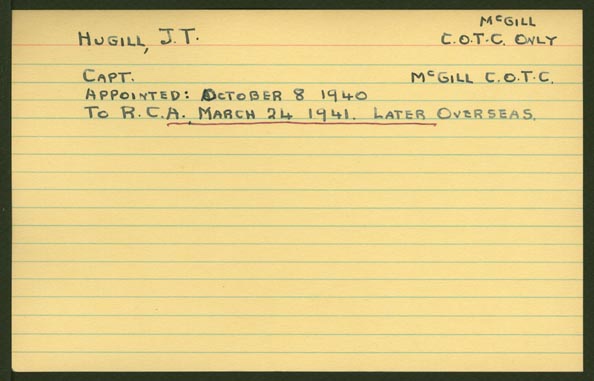 McGILL
HUGILL, J.T. C.O.T.C. ONLY
CAPT. McGILL C.O.T.C.
APPOINTED: OCTOBER 8 1940
TO R.C.A. MARCH 24 1941. LATER OVERSEAS.